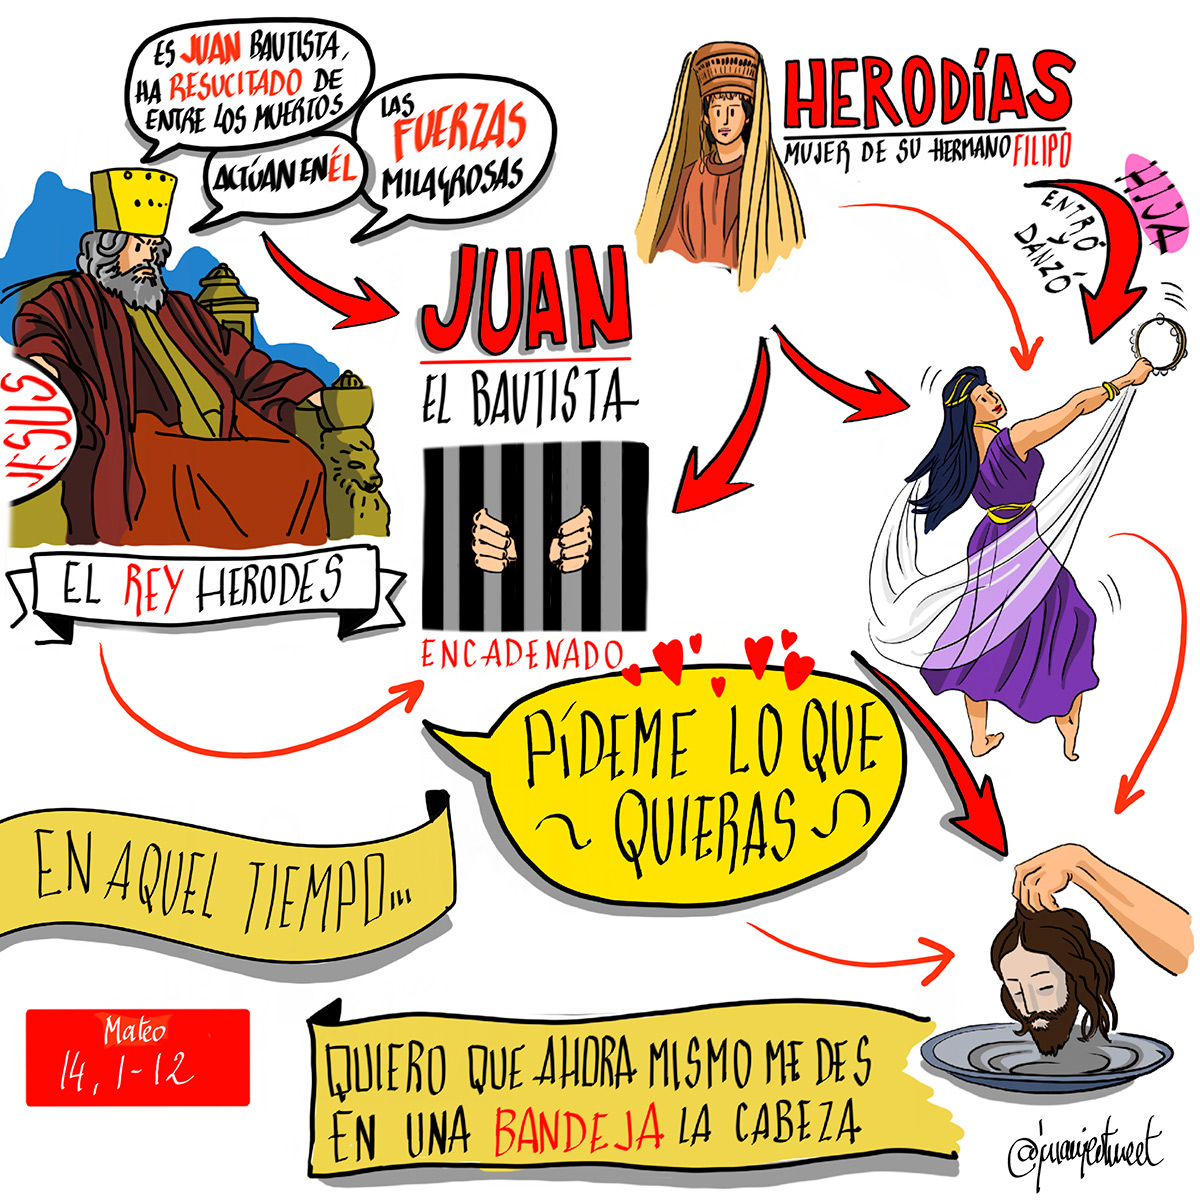 ES JUAN BAUTISTA,
HA RESUCITADO DE
ENTRE LOS MUERTOS
LAS
FUERZAS
MILAGROSAS
ACTÚAN EN ÉL
HERODÍAS
MUJER DE SU HERMANO FILIPO
HIJA
ENTRÓ
Y
DANZÓ
JUAN
EL BAUTISTA
JESUS
EL REY HERODES
ENCADENADO
PÍDEME LO QUE
QUIERAS
EN AQUEL TIEMPO...
Mateo
14, 1-12
QUIERO QUE AHORA MISMO ME DES
EN UNA BANDEJA LA CABEZA
@juanjetweet